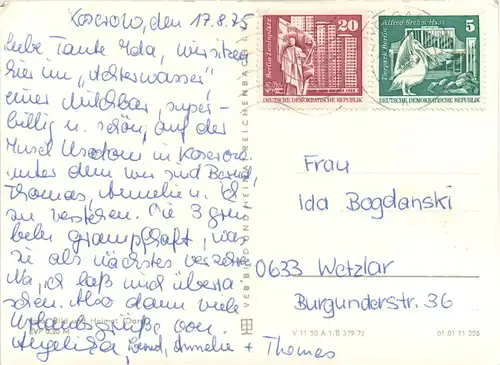 Koserow, den 17.8.75
Liebe Tante Ida, wir sitzen
hier im "Achterwasser",
einer Milchbar, super-
billig u. schön, auf der
Insel Usedom in Koserow
unter dem wir sind Bernd,
Thomas, Annelie u. ich
zu verstehen. Die 3 grü
beln krampfhaft, was
sie als nächstes verzehre
Na, ich laß mich überra
schen. Also dann viele
Urlaubsgrüße von
Angelika, Bernd, Annelie +
Thomas
VEB BILD UND HEIMAT REICHENBACH
Bild und Heimat
EVP 0,20 M
V 11 50 A 1/B 379/73
01 01 11 226
20
Berlin-Leninplatz
DEUTSCHE DEMOKRATISCHE REPUBLIK
5
Alfred-Brehm-Haus
Tierpark Berlin
DEUTSCHE DEMOKRATISCHE REPUBLIK
Frau
Ida Bogdanski
0633 Wetzlar
Burgunderstr. 36